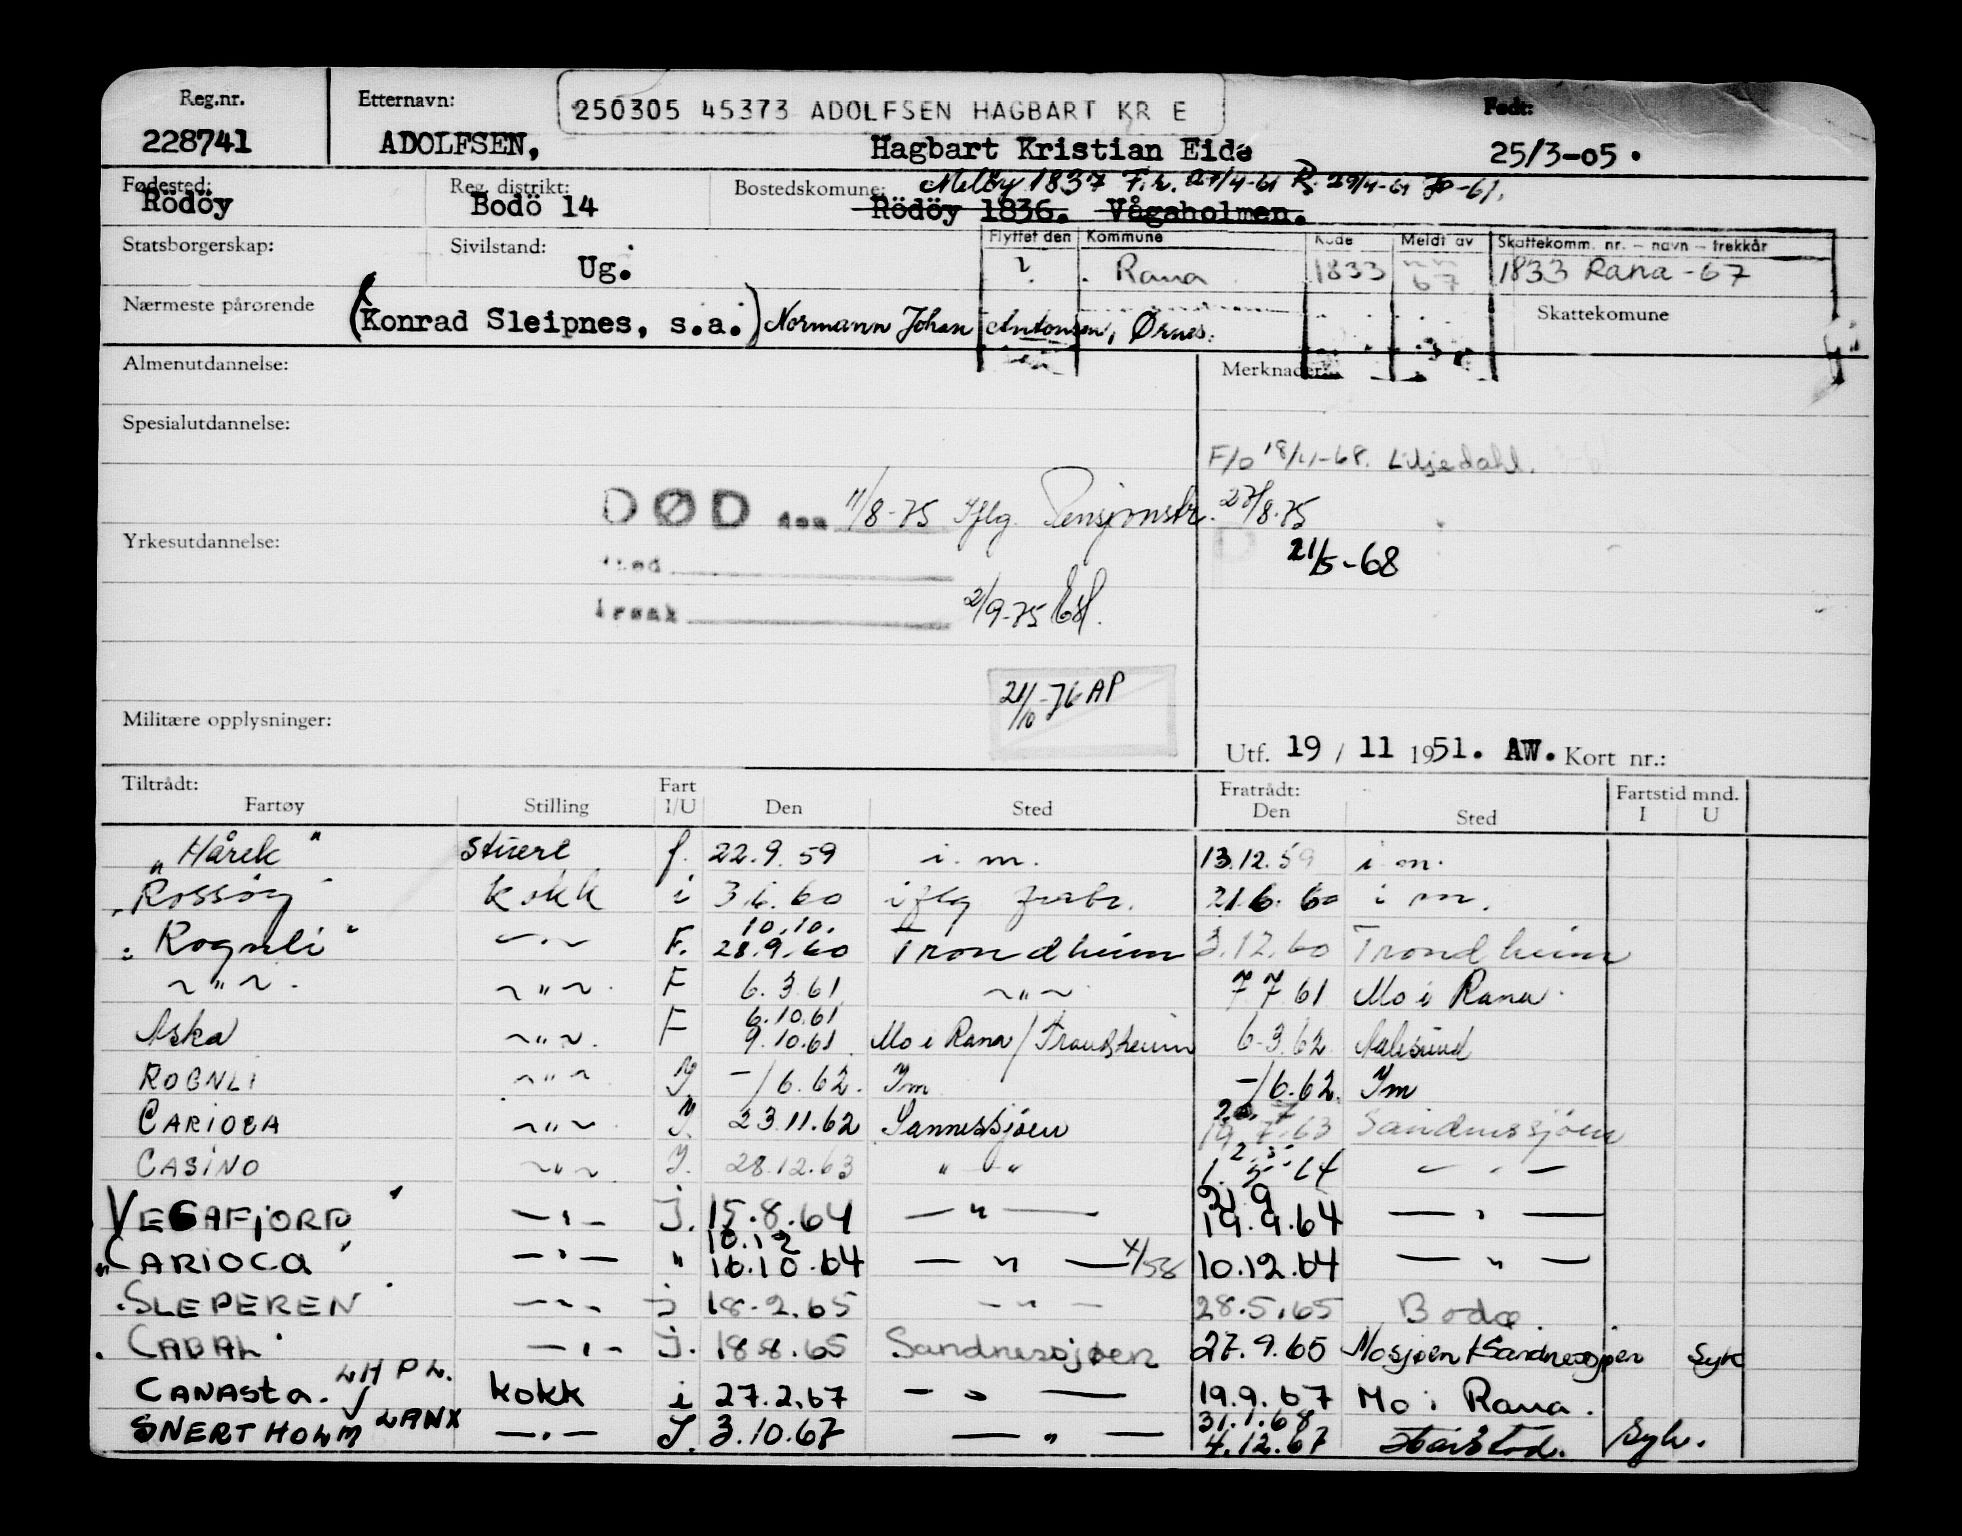 Reg.nr. Etternavn: 250305 45373 ADOLFSEN HAGBART KR E Født:
228741 ADOLFSEN, Hagbart Kristian Eide 25/3-05.
Fødested: Reg. distrikt: Bostedskomune: Meløy 1837 F.r. 27/4-61 29/4-61 -61.
Rödöy Bodö 14 Rödöy 1836. Vågaholmen.
Statsborgerskap: Sivilstand: Flyttet den Kommune Kode Meldt av Skattekomm. nr. - navn - trekkår
Ug. ? Rana 1833 67 1833 Rana -67
Nærmeste pårørende (Konrad Sleipnes, s.a.) Normann Johan Antonsen, Ørnes. Skattekomune
Almenutdannelse: Merknader:
Spesialutdannelse:
F/O 18/11-68. Liljedahl.
DØD den 11/8-75 Iflg. Pensjonstr. 27/8.75
Yrkesutdannelse: 21/5-68
sted
årsak 2/9-75
21/10-76 AP
Militære opplysninger:
Utf. 19 / 11 1951. AW. Kort nr.:
Tiltrådt: Fart Fratrådt: Fartstid mnd.
Fartøy Stilling I/U Den Sted Den Sted I U
"Hårek" stuert f. 22.9.59 i.m. 13.12.59 i.m.
"Rossøy" kokk i 3.6.60 iflg forbr. 21.6.60 i m.
10.10.
"Rognli" —"— F. 28.9.60 Trondheim 3.12.60 Trondheim
~"~. ~"~. F 6.3.61 ~"~ 7.7.61 Mo i Rana
6.10.61
Aska ~"~. F 9.10.61 Mo i Rana/Trondheim 6.3.62 Aalesund
ROGNLI ~"~ I. -/6.62. Im -/6.62. Im
20. 7
CARIOCA ~"~ I. 23.11.62 Sannessjøen 19.7.63 Sandnessjøen
2.5.
CASINO ~"~ I. 28.12.63 "—" 1.5.64 — " —
21 9
VEGAFJORD" — " — J. 15.8.64 — " — 19.9.64 — " —
10.12
"CARIOCA" — " — " 16.10.64 — " — 4/58 10.12.64 — " —
"SLEPEREN" — " — j 18.2.65 — " — 28.5.65 Bodø.
"CABAL" — " — J. 18.8.65 Sandnessjøen 27.9.65 Mosjøen/Sandnessjøen Syk
CANASTA. LHPL. kokk i 27.2.67 — " — 19.9.67 Mo i Rana.
31.1.68
SNERTHOLM LANX — " — I. 3.10.67 — " — 4.12.67 Syk.